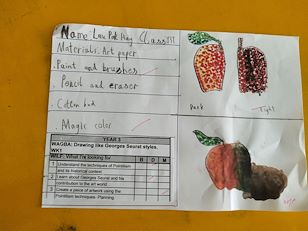 Name: Lau Pak Hing Class
Materials: Art paper
. Paint and brushes
. Pencil and eraser
. Cotton bud
. Magic color
YEAR 3
WAGBA: Drawing like Georges Seurat styles.
WK1
WILF: What I'm looking for B D M
1 Understand the techniques of Pointillism
and its historical context
2 Learn about Georges Seurat and his
contribution to the art world
3 Create a piece of artwork using the
Pointillism techniques: Planning
Dark
Tight